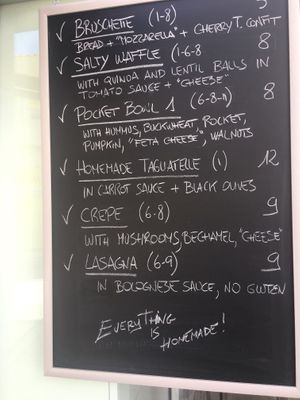 ✓ BRUSCHETTE (1-8)
BREAD + "MOZZARELLA" + CHERRY T. CONFIT
✓ SALTY WAFFLE (1-6-8 8
WITH QUINOA AND LENTIL BALLS IN
TOMATO SAUCE + "CHEESE"
✓ POCKET BOWL 1 (6-8-11) 8
WITH HUMMUS, BUCKWHEAT, ROCKET,
PUMPKIN, "FETA CHEESE", WALNUTS
✓ HOMEMADE TAGLIATELLE (1) 12
IN CARROT SAUCE + BLACK OLIVES
✓ CREPE (6-8) 9
WITH MUSHROOMS, BECHAMEL, "CHEESE"
✓ LASAGNA (6-9) 9
IN BOLOGNESE SAUCE, NO GLUTEN
EVERYTHING
IS
HOMEMADE!